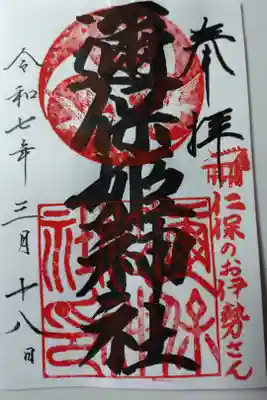 奉拝
仁保のお伊勢さん
彌保姫神社
令和七年三月十八日